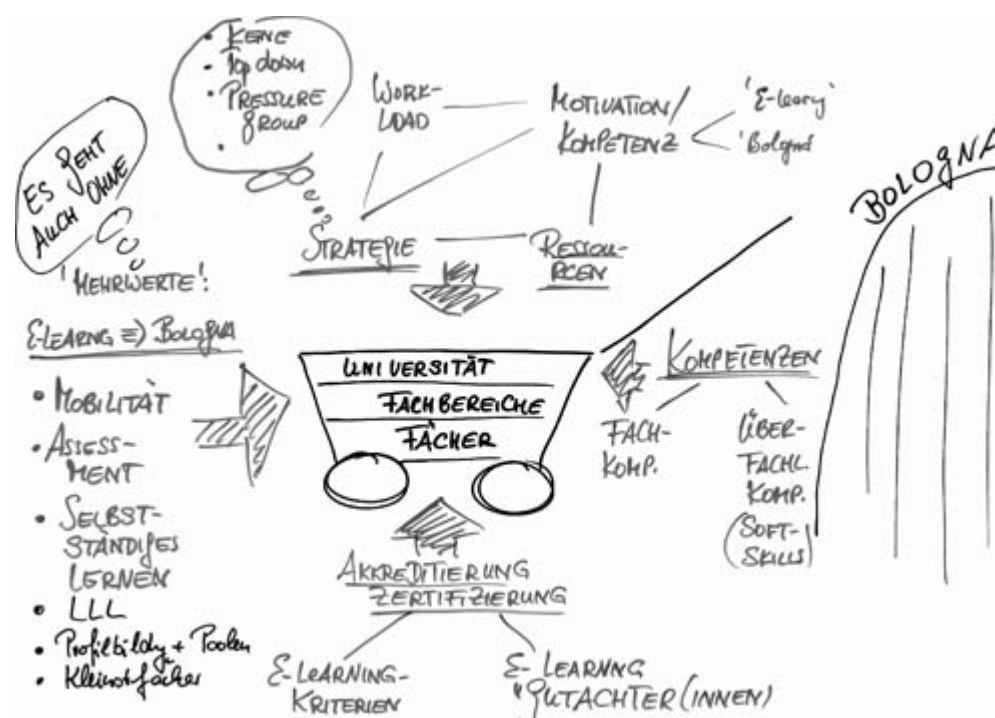 • KEINE
• Top down
• PRESSURE
GROUP
•
WORK-
LOAD
MOTIVATION/
KOMPETENZ
'E-learng'
'Bologna'
ES GEHT
AUCH OHNE
'MEHRWERTE':
STRATEGIE
RESSOU-
RCEN
BOLOGNA
E-LEARNG => BOLOGNA
• MOBILITÄT
• ASSESS-
MENT
• SELBST-
STÄNDIGES
LERNEN
• LLL
• Profilbildg + Poolen
• Kleinstfächer
UNIVERSITÄT
FACHBEREICHE
FÄCHER
KOMPETENZEN
FACH-
KOMP.
ÜBER-
FACHL.
KOMP.
(SOFT-
SKILLS)
AKKREDITIERUNG
ZERTIFIZIERUNG
E-LEARNING-
KRITERIEN
E-LEARNNG
"GUTACHTER(INNEN)